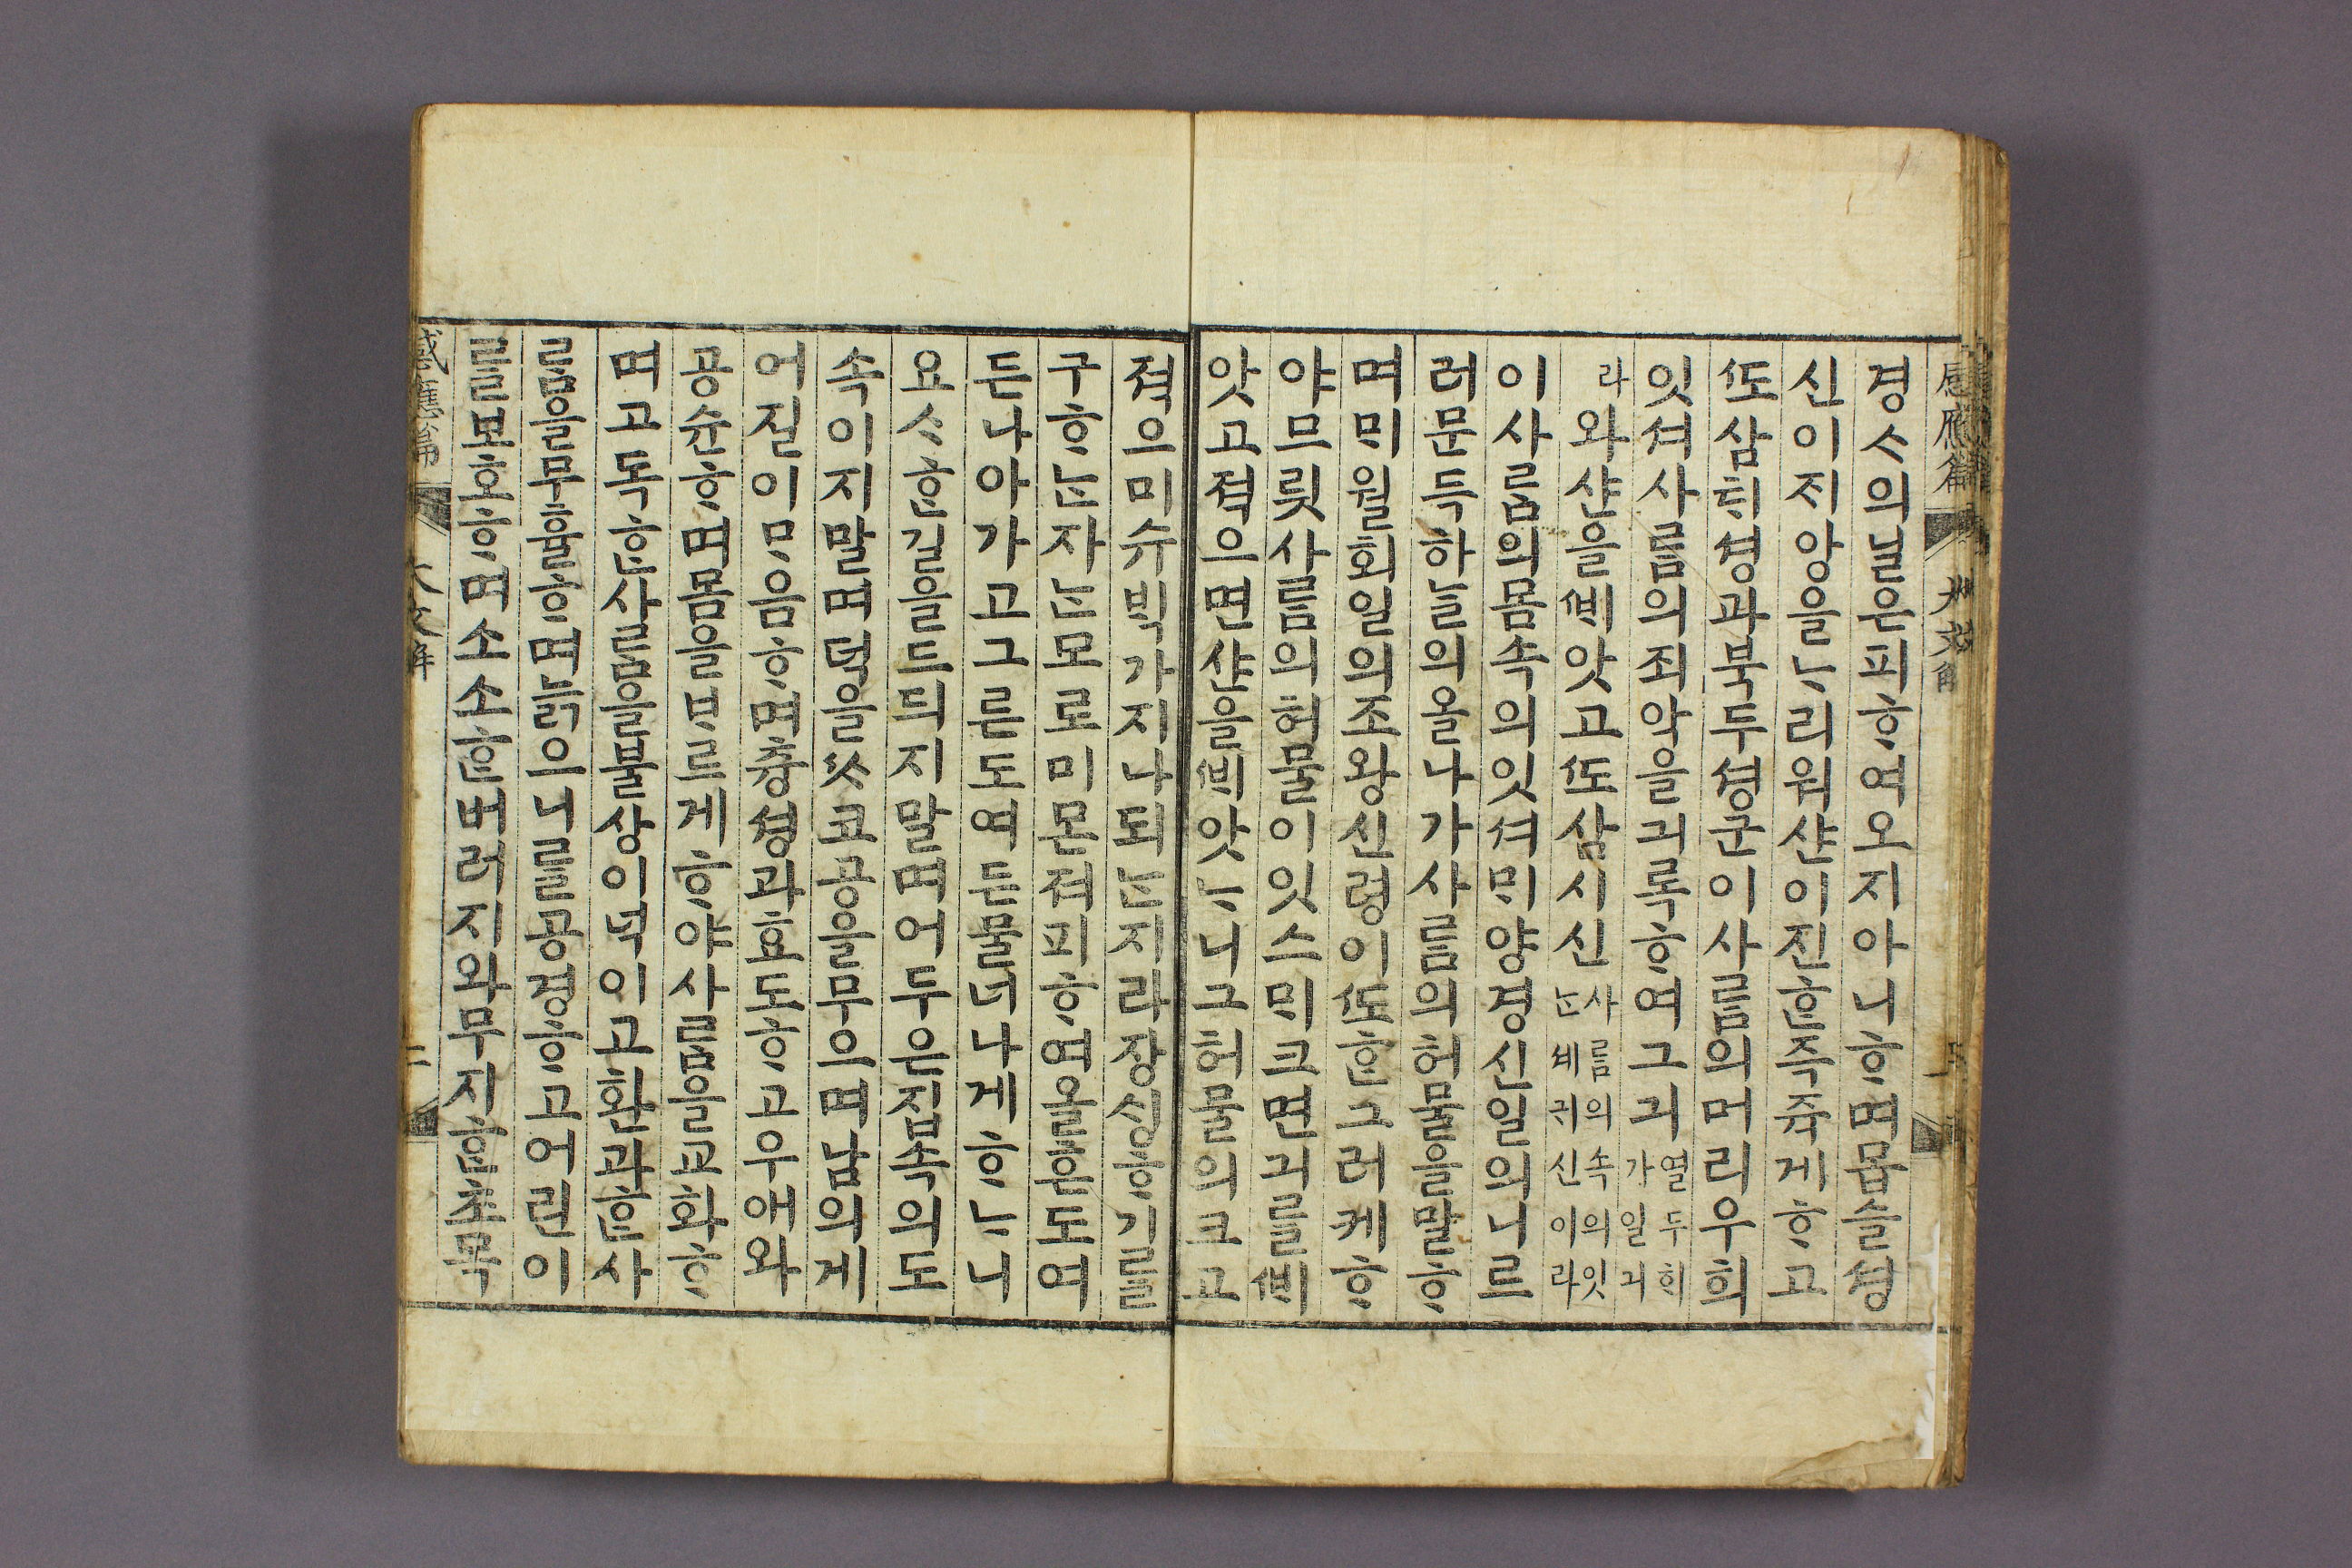 感應篇
경ᄉᆞ의ᄂᆞᆫ은피ᄒᆞ여오지아니ᄒᆞ며몹쓸셩
신이ᄌᆡ앙을ᄂᆞ리워샨이진ᄒᆞᆫ즉쥭게ᄒᆞ고
ᄯᅩ삼ᄐᆡ셩과북두셩군이사ᄅᆞᆷ의머리우희
잇셔사ᄅᆞᆷ의죄악을긔록ᄒᆞ여그긔열두ᄒᆡ가일긔
라와샨을ᄲᆡ앗고ᄯᅩ삼시신사ᄅᆞᆷ의속의잇ᄂᆞᆫ세귀신이라
이사ᄅᆞᆷ의몸속의잇셔ᄆᆡ양경신일의니르
러문득하ᄂᆞᆯ의올나가사ᄅᆞᆷ의허물을말ᄒᆞ
며ᄆᆡ월회일의조왕신령이ᄯᅩᄒᆞᆫ그러케ᄒᆞ
야므릇사ᄅᆞᆷ의허물이잇스ᄆᆡ크면긔ᄅᆞᆯᄲᆡ
앗고젹으면샨을ᄲᆡ앗ᄂᆞ니그허물의크고
젹으미슈ᄇᆡᆨ가지나되ᄂᆞᆫ지라쟝ᄉᆡᆼᄒᆞ기ᄅᆞᆯ
구ᄒᆞᄂᆞᆫ자ᄂᆞᆫ모로미몬져피ᄒᆞ여올흔도여
든나아가고그른도여든물너나게ᄒᆞᄂᆞ니
요ᄉᆞᄒᆞᆫ길을드듸지말며어두은집속의도
속이지말며덕을ᄊᆞ코공을무으며남의게
어진이ᄆᆞ음ᄒᆞ며츙셩과효도ᄒᆞ고우ᄋᆡ와
공슌ᄒᆞ며몸을ᄇᆞ르게ᄒᆞ야사ᄅᆞᆷ을교화ᄒᆞ
며고독ᄒᆞᆫ사ᄅᆞᆷ을불상이넉이고환과ᄒᆞᆫ사
ᄅᆞᆷ을무휼ᄒᆞ며늙으니ᄅᆞᆯ공경ᄒᆞ고어린이
ᄅᆞᆯ보호ᄒᆞ며소소ᄒᆞᆫ버러지와무지ᄒᆞᆫ초목
感應篇